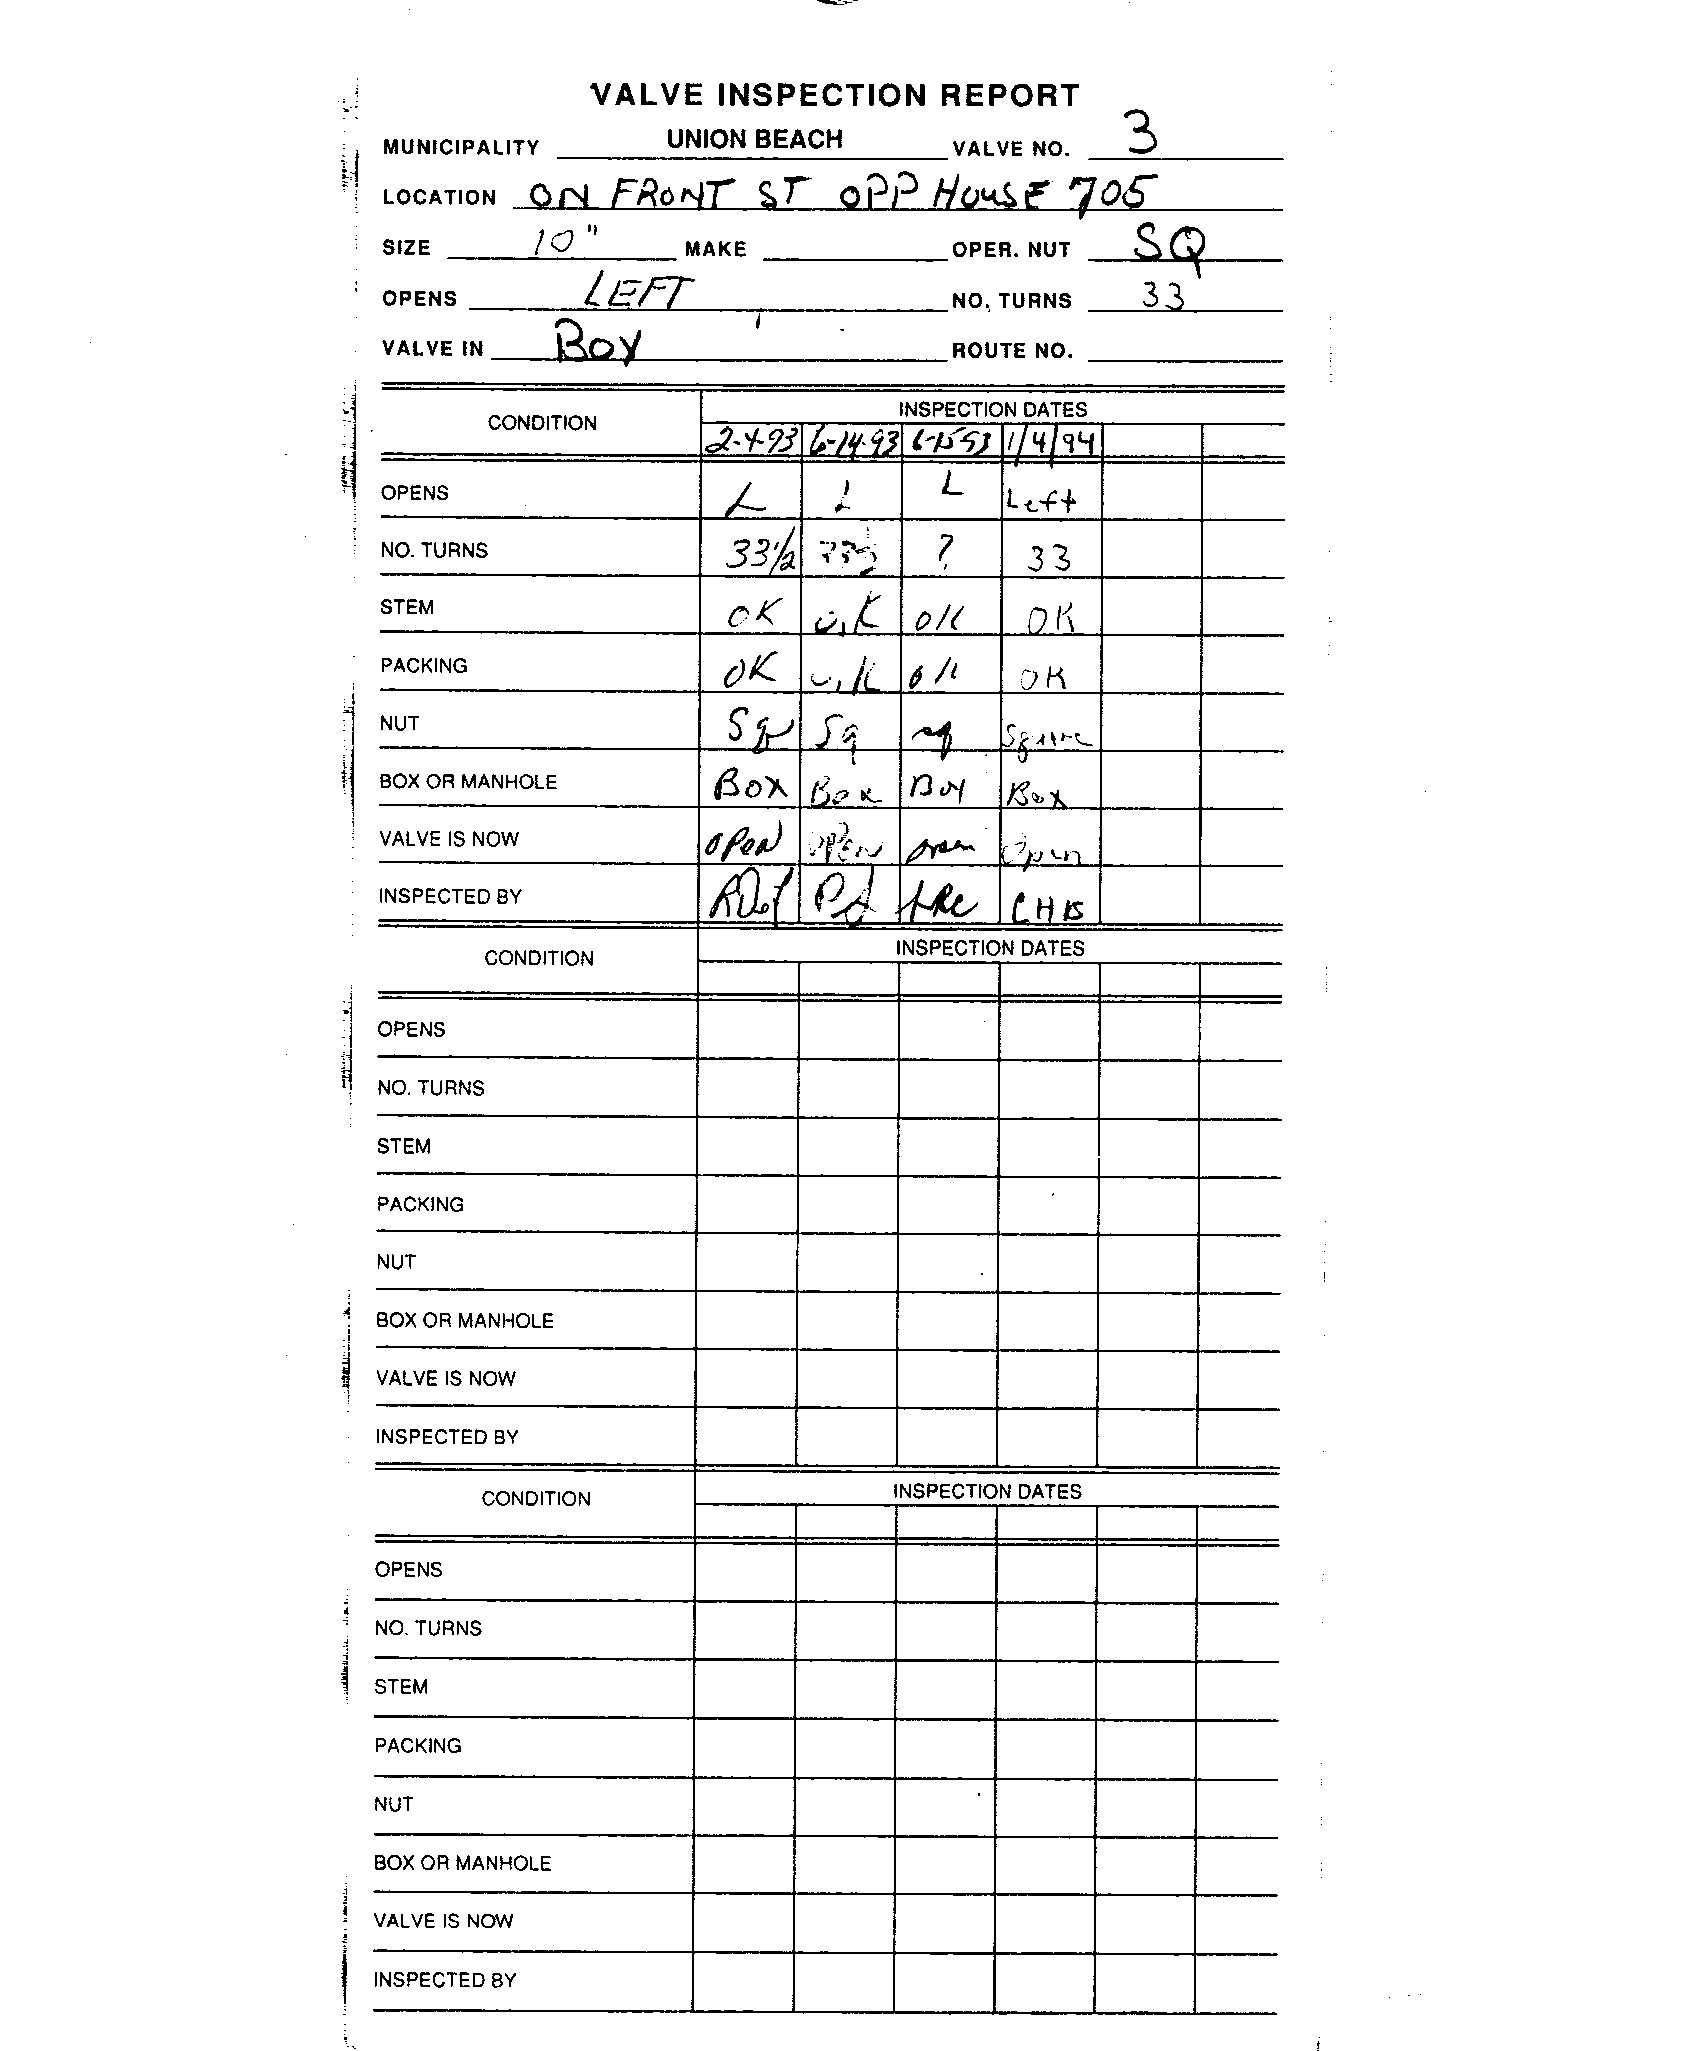 VALVE INSPECTION REPORT
MUNICIPALITY UNION BEACH VALVE NO. 3
LOCATION ON FRONT ST OPP HOUSE 705
SIZE 10" MAKE OPER. NUT SQ
OPENS LEFT NO. TURNS 33
VALVE IN BOX ROUTE NO.
CONDITION INSPECTION DATES
2-4-93 6-14-93 6-15-93 1/4/94
OPENS L L L Left
NO. TURNS 33½ ? 33
STEM OK O.K OK OK
PACKING OK O.K OK OK
NUT Sq Sq sq Square
BOX OR MANHOLE BOX Box Box Box
VALVE IS NOW OPEN OPEN open Open
INSPECTED BY
CONDITION INSPECTION DATES
OPENS
NO. TURNS
STEM
PACKING
NUT
BOX OR MANHOLE
VALVE IS NOW
INSPECTED BY
CONDITION INSPECTION DATES
OPENS
NO. TURNS
STEM
PACKING
NUT
BOX OR MANHOLE
VALVE IS NOW
INSPECTED BY